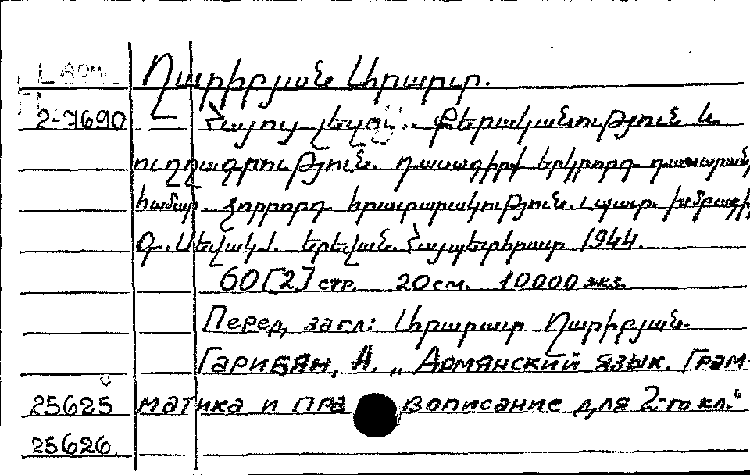 L АРМ. Ղարիբյան Արարատ.
2-7690 Հայոց լեզու.. քերականություն և
ուղղագրություն. դասագիրք երկրորդ դասարանի
համար. չորրորդ հրատարակություն. պատ. խմբագիր
Գ. Սևակ. Երևան. Հայպետհրատ 1944.
60[2] стр. 20 см. 10000 экз.
Перед загл: Արարատ Ղարիբյան.
Гарибян, А. „Армянский язык. Грам-
25625 матика и правописание для 2-го кл."
25626